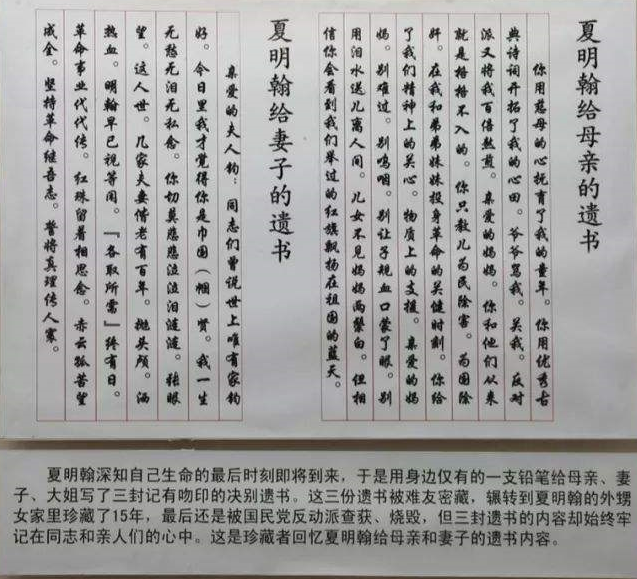 夏明翰给母亲的遗书
你用慈母的心抚育了我的童年。你用优秀古
典诗词开拓了我的心田。爷爷骂我。关我。反对
派又将我百倍熬煎。亲爱的妈妈。你和他们从来
就是格格不入的。你只教儿为民除害。为国除
奸。在我和弟弟妹妹投身革命的关键时刻。你给
了我们精神上的关心。物质上的支援。亲爱的妈
妈。别难过。别呜咽。别让子规血口蒙了眼。别
用泪水送儿离人间。儿女不见妈妈两鬓白。但相
信你会看到我们举过的红旗飘扬在祖国的蓝天。
夏明翰给妻子的遗书
亲爱的夫人钧：同志们曾说世上唯有家钧
好。今日里我才觉得你是巾国（帼）贤。我一生
无愁无泪无私念。你切莫悲悲泣泣泪涟涟。张眼
望。这人世。几家夫妻偕老有百年。抛头颅。洒
热血。明翰早已视等闲。『各取所需』终有日。
革命事业代代传。红珠留着相思念。赤云孤苦望
成全。坚持革命继吾志。誓将真理传人寰。
夏明翰深知自己生命的最后时刻即将到来，于是用身边仅有的一支铅笔给母亲、妻
子、大姐写了三封记有吻印的决别遗书。这三份遗书被难友密藏，辗转到夏明翰的外甥
女家里珍藏了15年，最后还是被国民党反动派查获、烧毁，但三封遗书的内容却始终牢
记在同志和亲人们的心中。这是珍藏者回忆夏明翰给母亲和妻子的遗书内容。